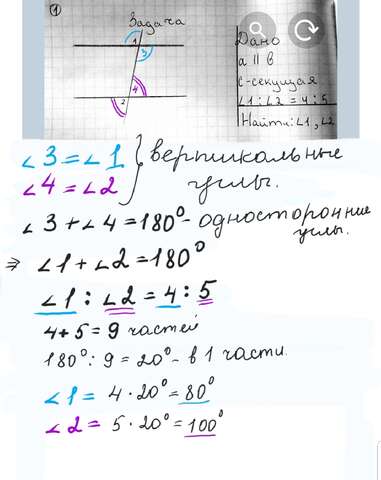 ①
Задача
1
3
4
2
Дано
a || в
c-секущая
∠1:∠2=4:5
Найти:∠1,∠2
∠3=∠1
∠4=∠2
} вертикальные
углы.
∠3+∠4=180°-односторонние
углы.
⇒ ∠1+∠2=180°
∠1:∠2=4:5
4+5=9 частей
180°:9=20°-в 1 части.
∠1= 4·20°=80°
∠2= 5·20°=100°